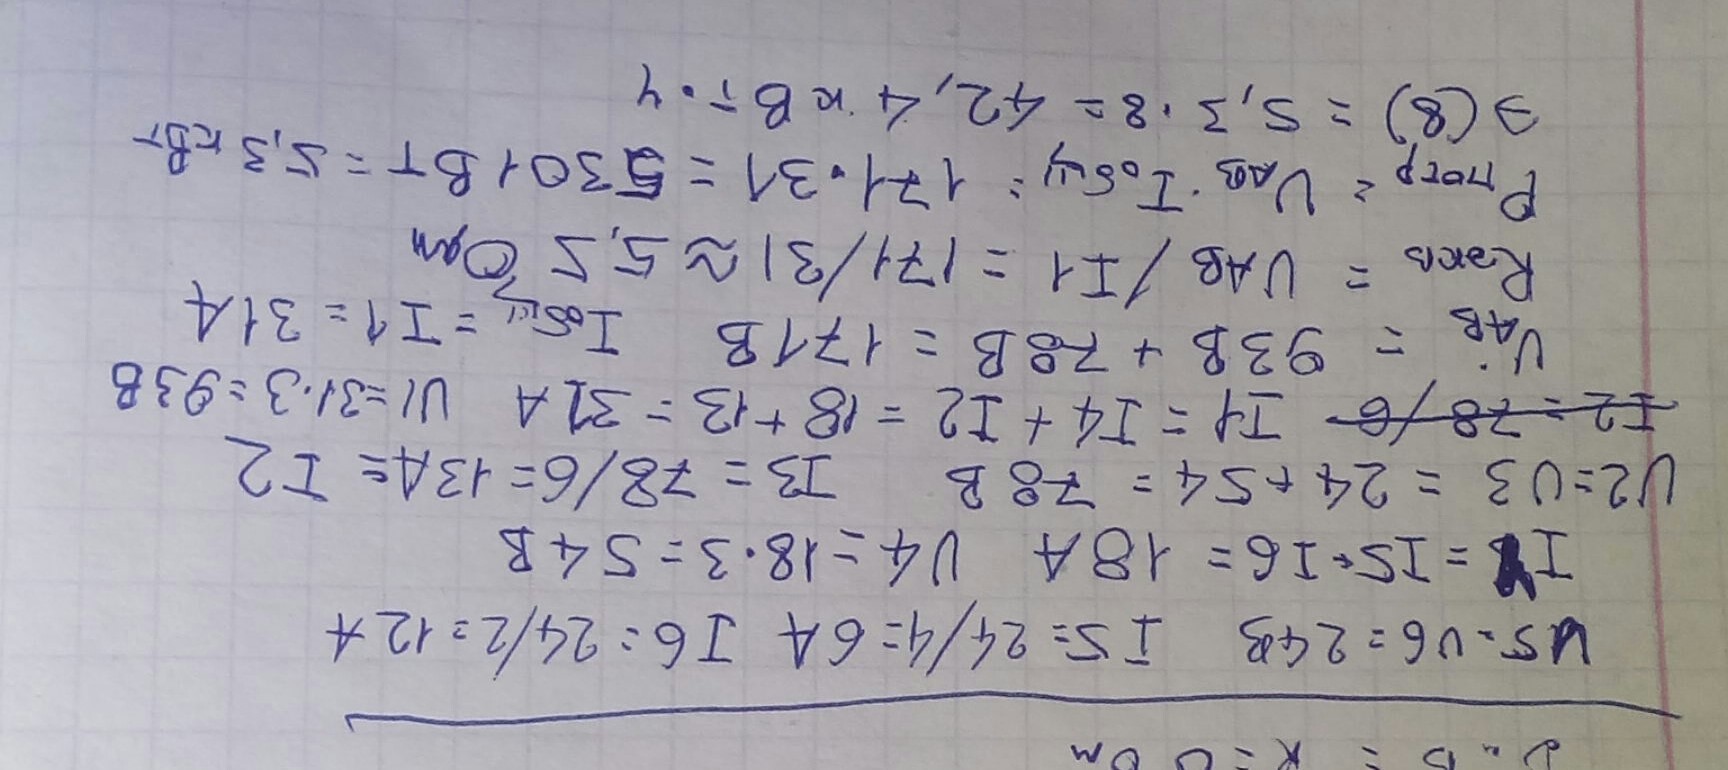 R=6 Ом
U5=U6=24В I5=24/4=6А I6=24/2=12А
I4=I5+I6=18А U4=18·3=54В
U2=U3=24+54=78В I3=78/6=13А=I2
I2=78/6 I1=I4+I2=18+13=31А U1=31·3=93В
UAB=93В+78В=171В Iобщ=I1=31А
Rэкв=UAB/I1=171/31≈5,5 Ом
Pпотр=UAB·Iобщ=171·31=5301Вт=5,3кВт
Э(8)=5,3·8=42,4 кВт·ч